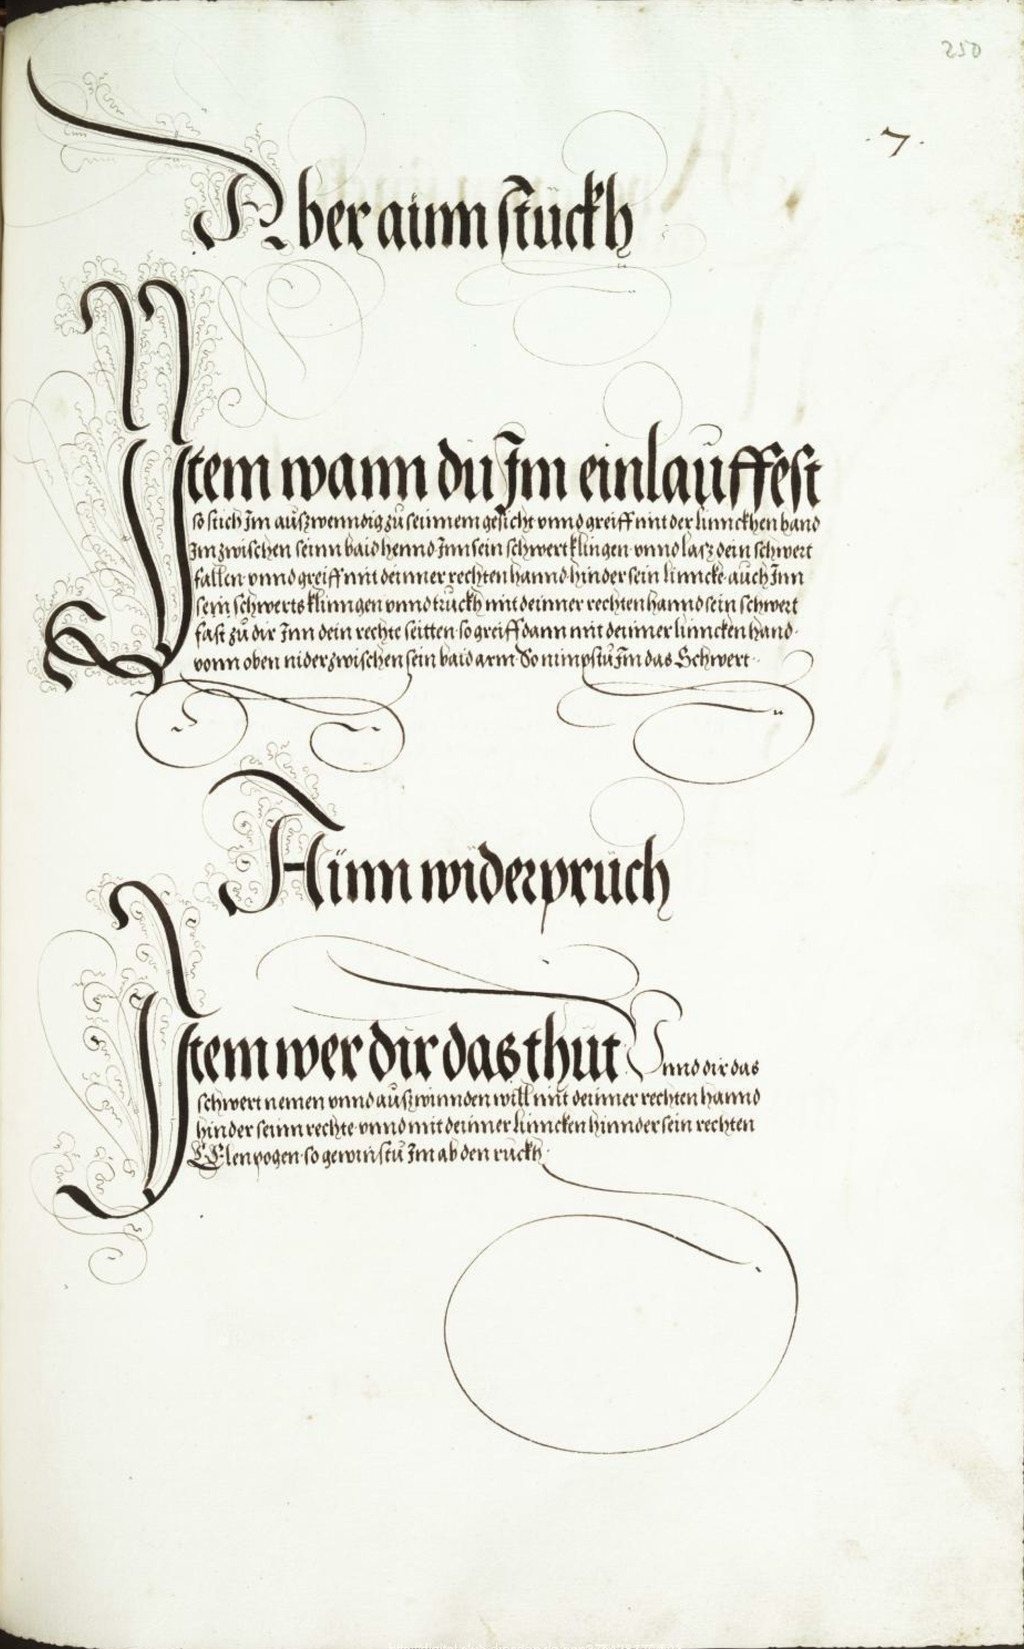 250
.7.
Aber ainn stückh
Ittem wann du Im einlauffest
so stich Im aus̈zwenndig zu seinnem gesicht vnnd greiff mit der linnckhen hand
Im zwischen seinn baid hennd Inn sein schwertklingen vnnd lasz dein schwert
fallen vnnd greiff mit deinner rechten hannd hinder sein linncke auch Inn
sein schwerts klinngen vnnd truckh mit deinner rechten hannd sein schwert
fast zu dir Inn dein rechte seitten so greiff dann mit deinner linncken hand
vonn oben nider zwischen sein baid arm So nimpstu Im das Schwert
Ainn widerpruch
Ittem wer dir das thut Vnnd dir das
schwert nemen vnnd auszwinnden will mit deinner rechten hannd
hinder seinn rechte vnnd mit deinner linncken hinnder sein rechten
Elenpogen so gewinstu Im ab den ruckh